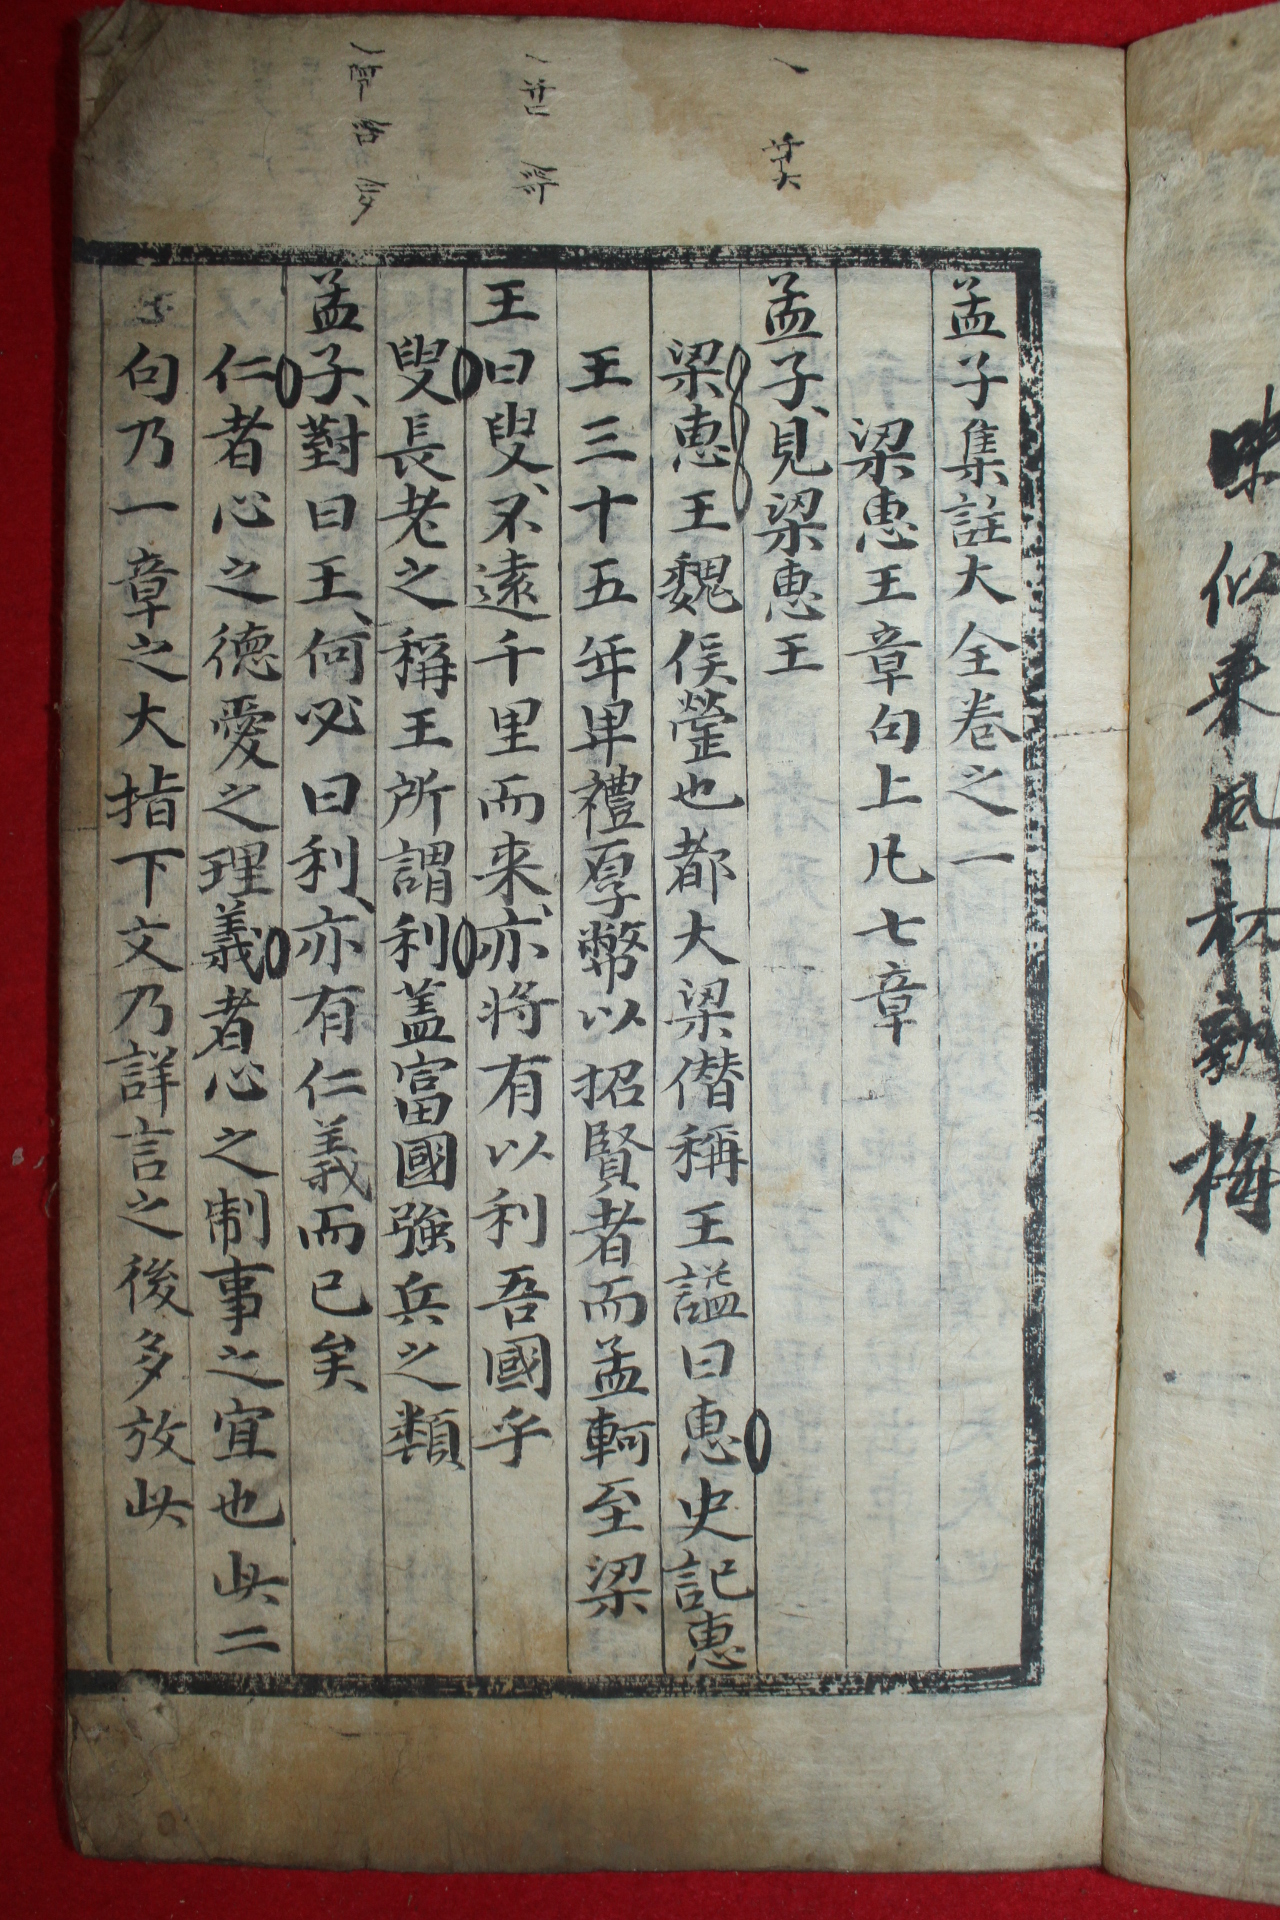 孟子集註大全卷之一
梁惠王章句上凡七章
孟子見梁惠王
梁惠王魏侯罃也都大梁僭稱王謚曰惠史記惠
王三十五年卑禮厚幣以招賢者而孟軻至梁
王曰叟不遠千里而来亦将有以利吾國乎
叟長老之稱王所謂利盖富國強兵之類
孟子對曰王何必曰利亦有仁義而已矣
仁者心之德愛之理義者心之制事之宜也此二
句乃一章之大指下文乃詳言之後多放此